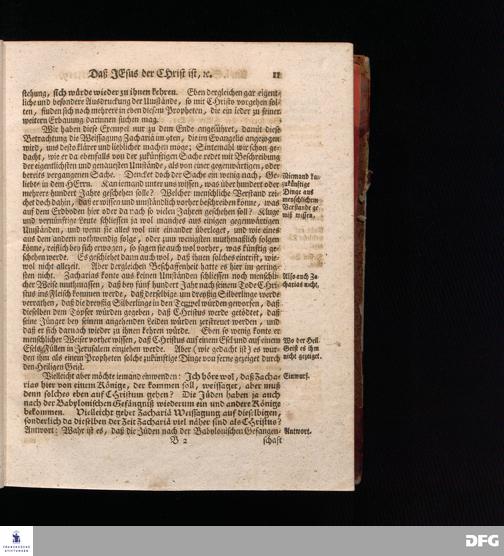 Daß JEsus der CHrist ist, ꝛc. 11
stehung, sich würde wieder zu ihnen kehren. Eben dergleichen gar eigent-
liche und besondere Ausdruckung der Umstände, so mit CHristo vorgehen sol-
ten, finden sich noch mehrere in eben diesem Propheten, die ein ieder zu seiner
weitern Erbauung darinnen suchen mag.
Wir haben diese Exempel nur zu dem Ende angeführet, damit diese
Betrachtung die Weissagung Zachariä im 9ten, die im Evangelio angezogen
wird, uns desto klärer und lieblicher machen möge; Sintemahl wir schon ge-
dacht, wie er da ebenfalls von der zukünfftigen Sache redet mit Beschreibung
der eigentlichsten und genauesten Umstände, als von einer gegenwärtigen, oder
bereits vergangenen Sache. Dencket doch der Sache ein wenig nach, Ge-
liebte in dem HErrn. Kan iemand unter uns wissen, was über hundert oder
mehrere hundert Jahre geschehen solle? Welcher menschliche Verstand rei-
chet doch dahin, daß er wissen und umständlich vorher beschreiben könne, was
auf dem Erdboden hier oder da nach so vielen Jahren geschehen soll? Kluge
und vernünfftige Leute schliessen ja wol manches aus einigen gegenwärtigen
Umständen, und wenn sie alles wol mit einander überleget, und wie eines
aus dem andern nothwendig folge, oder zum wenigsten muthmaßlich folgen
könne, reiflich bey sich erwogen, so sagen sie auch wol vorher, was künftig ge-
schehen werde. Es geschiehet dann auch wol, daß ihnen solches eintrift, wie-
wol nicht allezeit. Aber dergleichen Beschaffenheit hatte es hier im gering-
sten nicht. Zacharias konte aus keinen Umständen schliessen noch menschli-
cher Weise muthmassen, daß bey fünf hundert Jahr nach seinem Tode Chri-
stus ins Fleisch kommen werde, daß derselbige um dreyßig Silberlinge werde
verrathen, daß die dreyßig Silberlinge in den Tempel würden geworfen, daß
dieselben dem Töpfer würden gegeben, daß CHristus werde getödtet, daß
seine Jünger bey seinem angehenden Leiden würden zerstreuet werden, und
daß er sich darnach wieder zu ihnen kehren würde. Eben so wenig konte er
menschlicher Weise vorher wissen, daß CHristus auf einem Esel und auf einem
Esels-Füllen in Jerusalem einziehen werde. Aber (wie gedacht ist) es wur-
den ihm als einem Propheten solche zukünftige Dinge von ferne gezeiget durch
den Heiligen Geist.
Vielleicht aber möchte iemand einwenden: Ich höre wol, daß Zacha-
rias hier von einem Könige, der kommen soll, weissaget, aber muß
denn solches eben auf CHristum gehen? Die Jüden haben ja auch
nach der Babylonischen Gefängniß wiederum ein und andere Könige
bekommen. Vielleicht gehet Zachariä Weissagung auf dieselbigen,
sonderlich da dieselben der Zeit Zachariä viel näher sind als CHristus?
Antwort: Wahr ist es, daß die Jüden nach der Babylonischen Gefangen-
B 2 schaft
Niemand kan
zukünftige
Dinge aus
menschlichem
Verstande ge-
wiß wissen,
Also auch Za-
charias nicht,
Wo der Heil.
Geist es ihm
nicht gezeiget.
Einwurf.
Antwort.
FRANCKESCHE
STIFTUNGEN
DFG